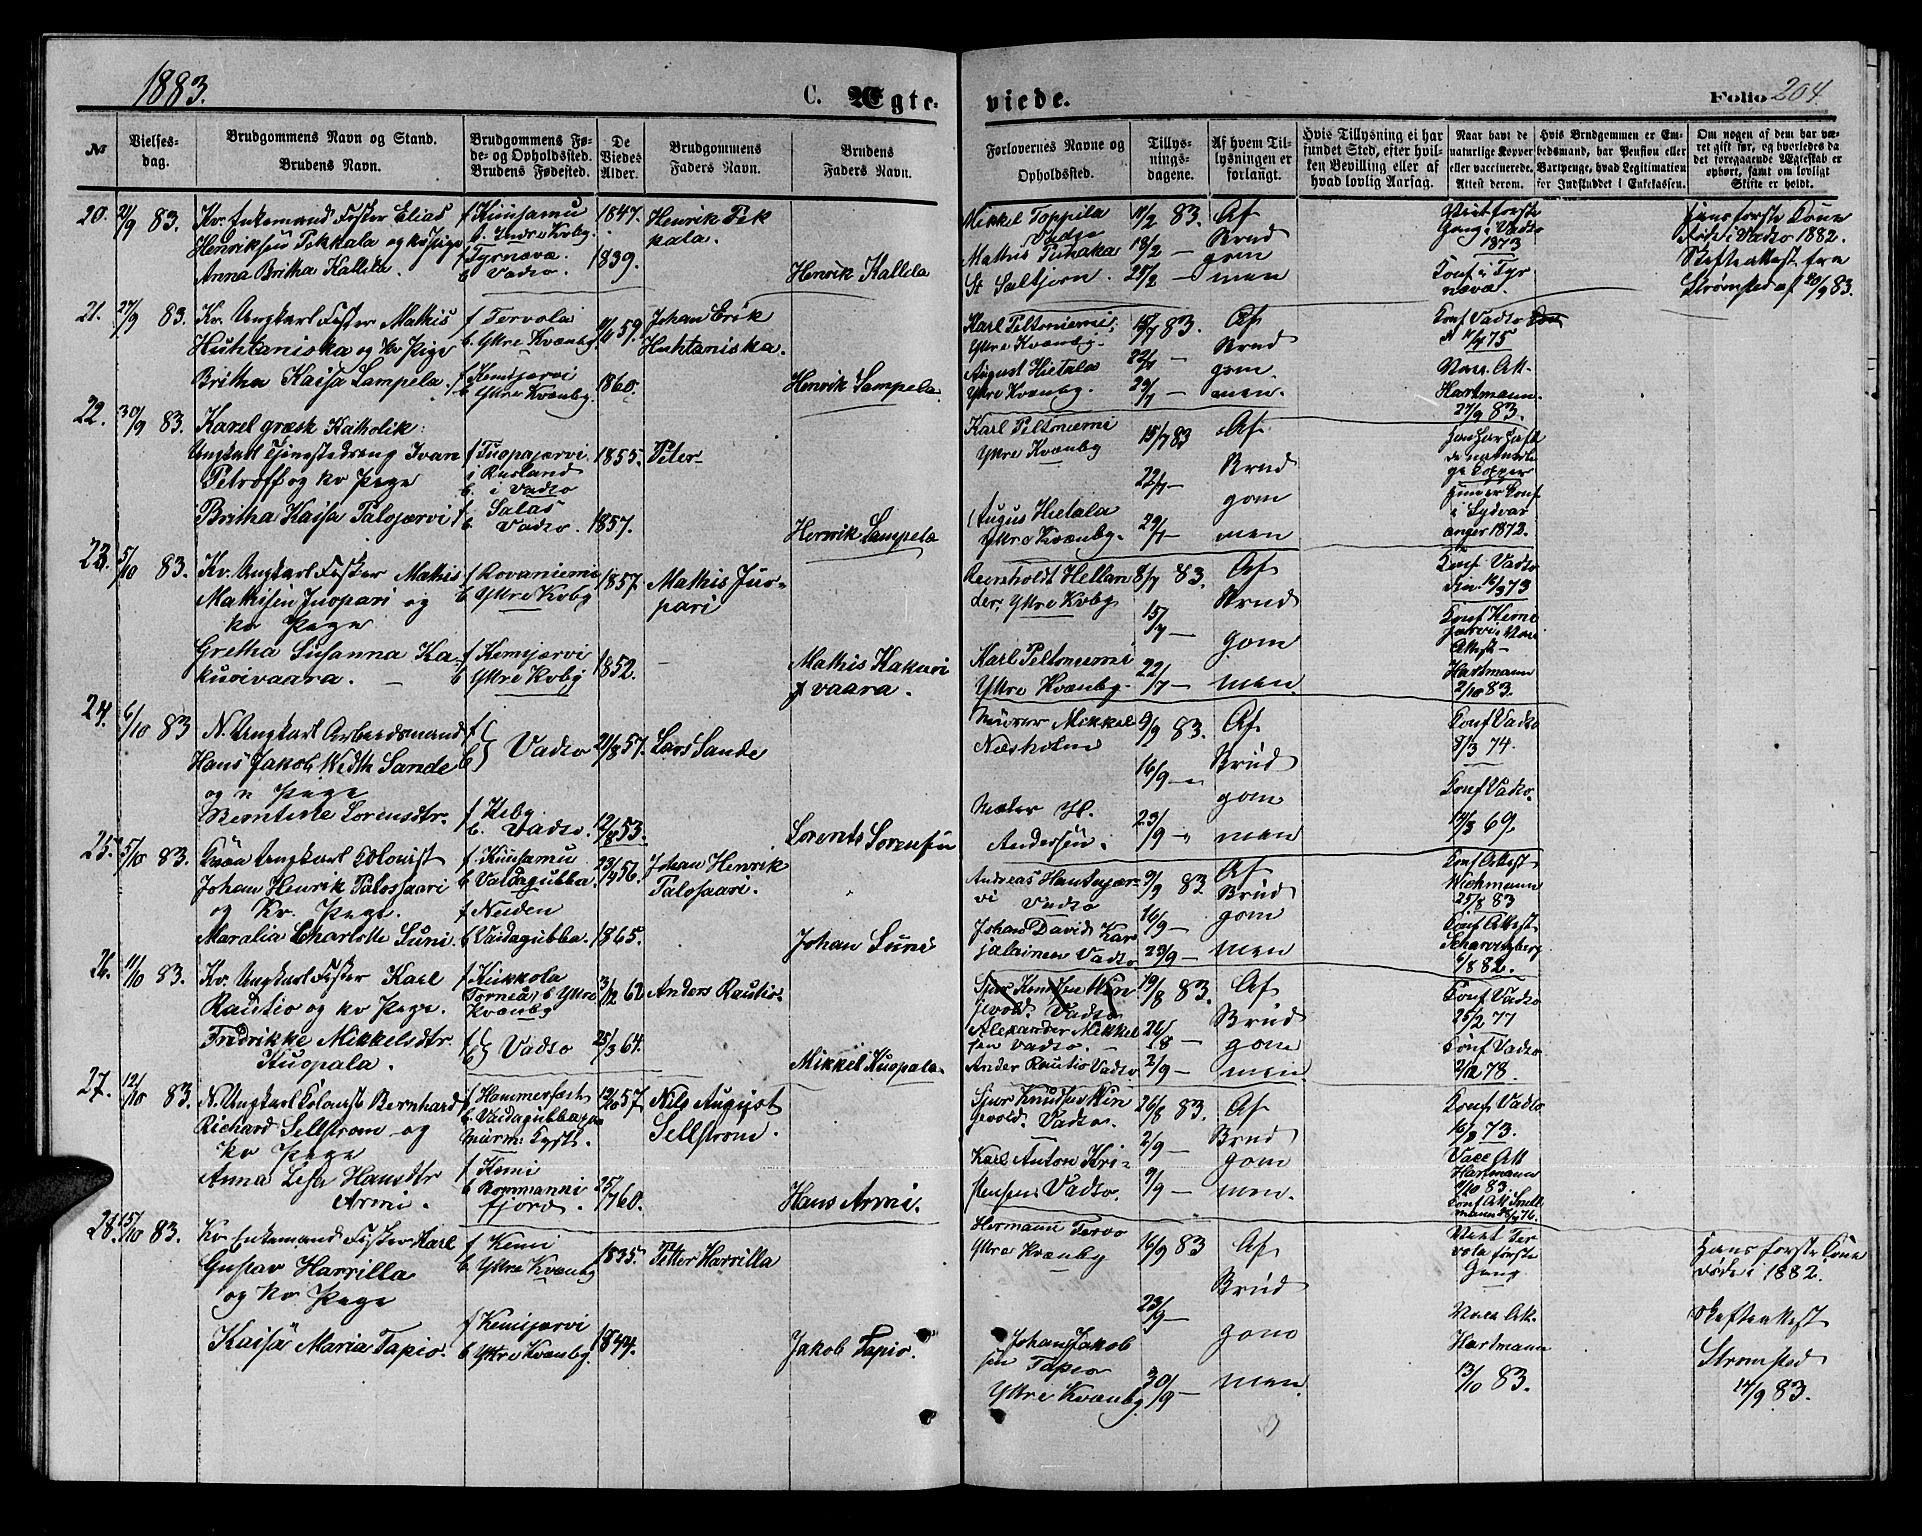 1883.
C. Ægte-
viede.
Folio 204
№
Vielses-
dag.
Brudgommens Navn og Stand.
Brudens Navn.
Brudgommens Fø-
de- og Opholdssted.
Brudens Fødested.
De
Viedes
Alder.
Brudgommens
Faders Navn.
Brudens
Faders Navn.
Forlovernes Navne og
Opholdssted.
Tillys-
nings-
dagene.
Af hvem Til-
lysningen er
forlangt.
Hvis Tillysning ei har
fundet Sted, efter hvil-
ken Bevilling eller af
hvad lovlig Aarsag.
Naar havt de
naturlige Kopper
eller vaccinerede.
Attest derom.
Hvis Brudgommen er Em-
bedsmand, har Pension eller
Vartpenge, hvad Legitimation
for Indskuddet i Enkekassen.
Om nogen af dem har væ-
ret gift før, og hvorledes da
det foregaaende Ægteskab er
ophørt, samt om lovligt
Skifte er holdt.
20. 2/9 83. Kv. Enkemand Fisker Elias
Henriksen Pekkala og kv Pige
Anna Britha Kallela.
f Kuusamu
b. Indre Kvbg.
f Tyrnævæ.
b Vadsø.
1847.
1839.
Henrik Pek
kala.
Henrik Kallela
Mikkel Toppila
Vadsø
Mathis Puhaka
St Saltjern
11/2 83.
18/2 —
25/2 —
Af
Brud
gom
men
Viet første
Gang i Vadsø
1873
Conf i Tyr
nævæ.
Hans første Kone
døde i Vadsø 1882.
Skifteattest fra
Strømsted af 20/9 83.
21. 27/9 83. Kv. Ungkarl Fisker Mathis
Huhtaniska og kv Pige
Britha Kaisa Lampela.
f Tervola
b Ytre Kvænbg.
f Kemijærvi
b Ytre Kvænbg.
59.
1860.
Johan Erik
Huhtaniska.
Henrik Lampela
Karl Peltoniemi;
Ytre Kvænbg.
August Hietala
Ytre Kvænbg.
15/7 83.
22/7 —
29/7 —
Af
Brud
gom
men.
Conf Vadsø
75
Vacc. Att.
Hartmann.
27/9 83.
22. 30/9 83. Karel græsk Katholik:
Ungkarl Tjenestedreng Ivan
Petroff og kv Pige
Britha Kaisa Palojærvi
f Tuopajærvi
i Rusland
b. i Vadsø
f. Salas
b Vadsø.
1855.
1857.
Peter
Henrik Lampela
Karl Peltoniemi
Ytre Kvænbg
Augus Hietala
Ytre Kvænbg.
15/7 83
22/7 —
29/7 —
Af
Brud
gom
men
Han har haft
de naturli
ge Kopper
Hun er Conf
i Sydvar
anger 1872.
23. 5/10 83. Kv. Ungkarl Fisker Mathis
Mathisen Juopari og
kv Pige
Gretha Susanna Ka-
kurivaara. —
f Rovaniemi
b Ytre Kvbg
f Kemijærvi
b Ytre Kvbg
1857.
1852.
Mathis Juo-
pari
Mathis Kakuri
vaara.
Reinholdt Hellan
der, Ytre Kvbg
Karl Peltoniemi
Ytre Kvænbg.
8/7 83.
15/7 —
22/7 —
Af
Brud
gom
men.
Conf Vadsø
73
Conf Kemi
jærvi Vacc
Attest
Hartmann
2/10 83.
24. 6/10 83 N. Ungkarl Arbeidsmand
Hans Jakob Wedth Sande
og n Pige
Berntine Lorensdtr.
f
b } Vadsø
f Kiby
b. Vadsø.
21/8 57.
12/8 53.
Lars Sande
Lorents Sorensen
Murer Mikkel
Næsholm
Maler H.
Andersen.
9/9 83.
16/9 —
23/9 "
Af
Brud
gom
men
Conf Vadsø
8/3 74.
Conf Vadsø.
14/3 69.
25. 5/10 83. Ungkarl Colonist
Johan Henrik Palossaari
og Kv. Pige.
Maralia Charlotte Luni.
f. Kuusamu
b Vaidagubba.
f Neiden
b Vaidagubba.
23/9 56.
1865.
Johan Henrik
Palosaari.
Johan Luni
Andreas Hautajær-
vi Vadsø
Johan David Kar
jalainen Vadsø
9/9 83
16/9 —
23/9 —
Af
Brud
gom
men
Conf Attest
Wichmann
25/8 83
Conf Attest
6/8 82.
26. 11/10 83. Kv. Ungkarl Fisker Karl
Rautio og kv Pige.
Fredrikke Mikkelsdtr.
Kuopala.
f Kukkola
Torneå, b Ytre
Kvænbg
f
b } Vadsø
3/12 62
25/3 64.
Anders Rautio.
Mikkel Kuopala.
Sjur Knudsen Win
jevold. Vadsø
Alexander Mikkel
sen Vadsø.
Ander Rautio Vadsø
19/8 83.
26/8 —
2/9 —
Af
Brud
gom
men.
Conf Vadsø
25/2 77
Conf Vadsø
2/12 78.
27. 12/10 83. N. Ungkarl Colonist Bernhard
Richard Sellstrom og
kv Pige
Anna Lisa Hansdtr
Armi.
f Hammerfest
b Vaidagubba paa
Murm: Kyst.
f Kemi
b Bommanni
fjord.
57
25/7 60.
Nils August
Sellstrom.
Hans Armi.
Sjur Knudsen Win
jevold. Vadsø.
Karl Anton Kri-
stensen Vadsø.
26/8 83.
2/9 —
9/9 —
Af
Brud
gom
men.
Conf. Vadsø
73.
Vacc Att
Hartmann
9/10 83.
Conf. Att Snell
mann 76.
28. 15/10 83. Kv. Enkemand Fisker Karl
Gustav Harrilla
og kv. Pige
Kaisa Maria Tapio.
f Kemi
b Ytre Kvænbg
f Kemijærvi
b Ytre Kvænbg.
1835.
1844.
Petter Harrilla
Jakob Tapio.
Hermann Tervo
Ytre Kvænbg
Johan Jakob
sen Tapio
Ytre Kvænbg.
16/9 83
23/9 —
30/9 —
Af
Brud
gom
men.
Viet Ter
vola første
Gang
Vacc Att.
Hartmann
13/10 83.
Hans første Kone
døde i 1882.
Skifteattest
Strømsted
14/9 83.